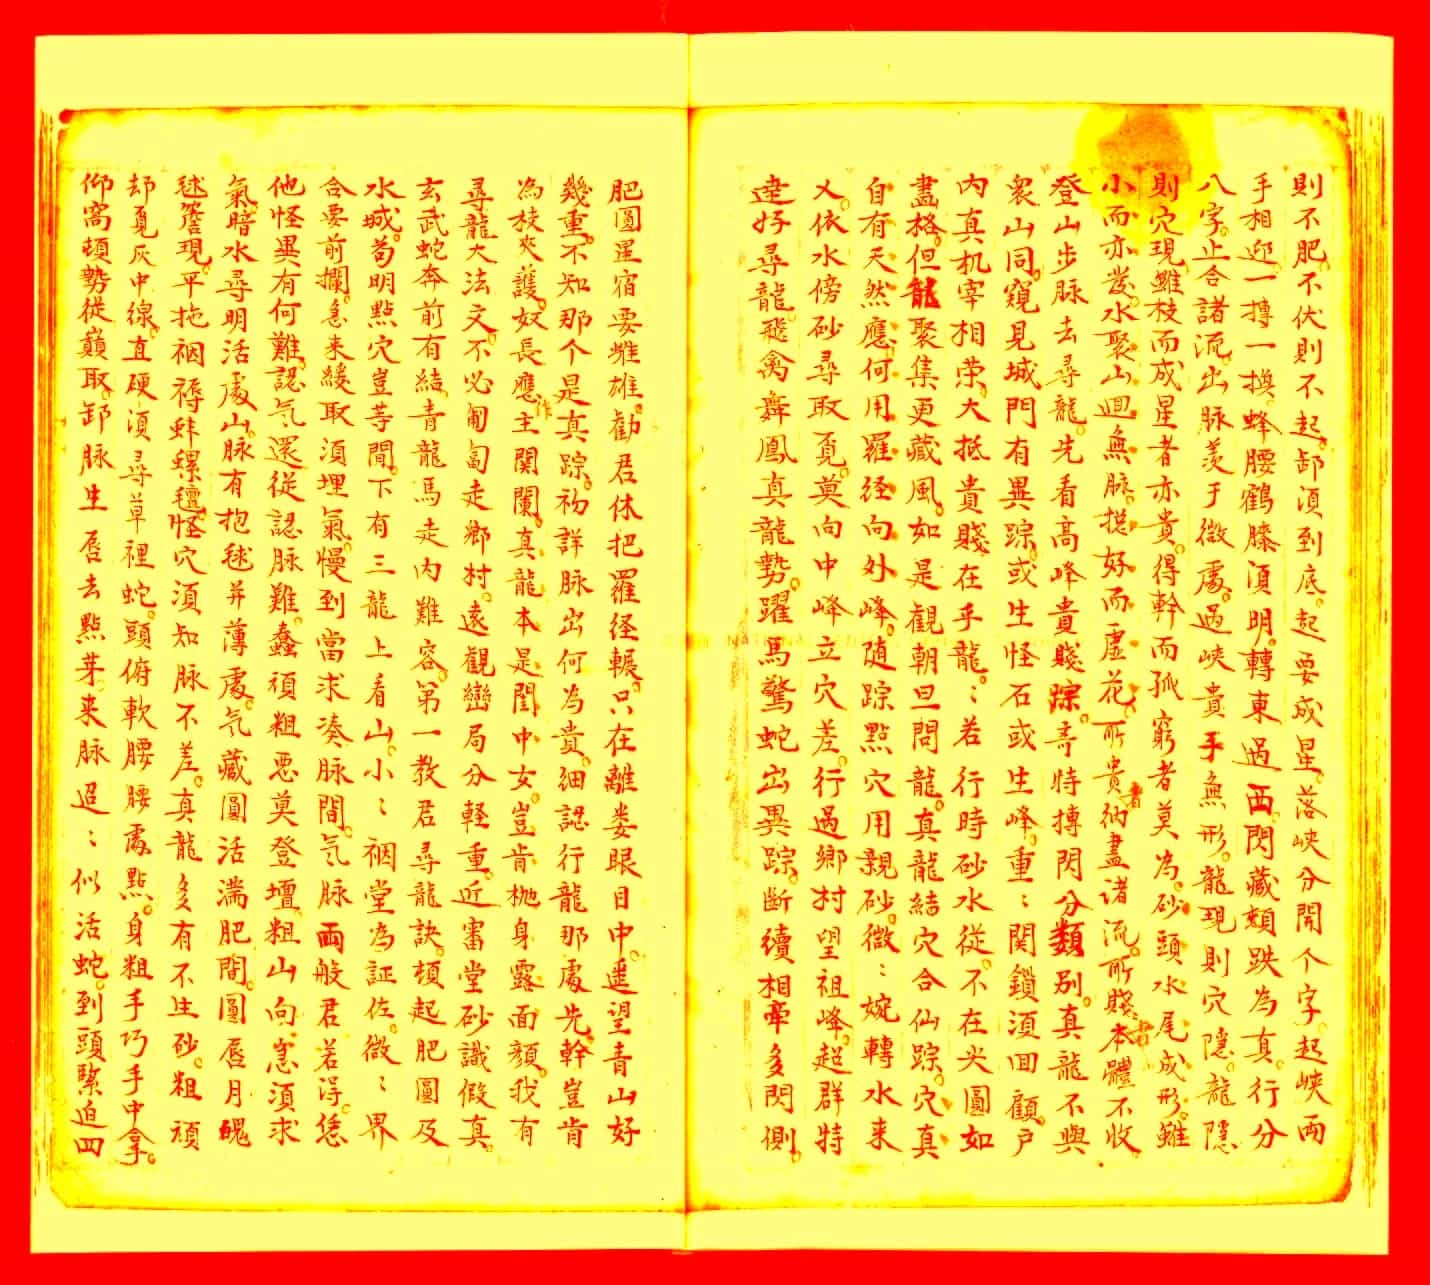 則不肥。不伏則不起。卸須到底。起要成星。落峽分開个字。起峽兩
手相迎。一摶一換。蜂腰鶴膝須明。轉東過西。閃藏頬跌為真。行分
八字。止合諸流。出脉羡于微處。過峽貴手無形。龍現則穴隱。龍隱
則穴現。雖枝而成星者亦貴。得幹而孤窮者莫為。砂頭水尾成形。雖
小而亦發。水聚山迴無脉。摸好而虛花。所貴者納盡諸流。所賤者本體不收
登山步脉去尋龍。先看高峰貴賤踪。奇特摶閃分類別。真龍不與
衆山同。窺見城門有異踪。或生怪石或生峰。重〻関鎖須回顧。户
内真机宰相荣。大抵貴賤在乎龍。〻若行時砂水従。不在尖圓如
畫格。但龍聚集更藏風。如是觀朝旦問龍。真龍結穴合仙踪。穴真
自有天然應。何用羅経向外峰。随踪點穴用親砂。微〻婉轉水来
乂。依水傍砂尋取覓。莫向中峰立穴差。行過鄉村望祖峰。起群特
達好尋龍。飛禽舞鳳真龍勢。躍馬驚蛇出異踪。断續相牽多閃側。
肥圓星宿要雌雄。勸君休把羅径輾。只在離娄眼目中。遥望青山好
幾重。不知那个是真踪。初詳脉出何為貴。細認行龍那處先。幹豈肯
為枝夾護。奴長應作主関闌。真龍本是閨中女。豈肯抛身露面顔。我有
尋龍大法文。不必匍匐走鄉村。遠觀巒局分軽重。近審堂砂識假真。
玄武蛇奔前有結。青龍馬走内難容。第一教君尋龍訣。頓起肥圓及
水城。苟明點穴豈等閒。下有三龍上看山。小〻裀堂為証佐。微〻界
合要前攔。急来緩取須埋氣。慢到當求凑脉間。气脉兩般君若得。恁
他怪異有何難。認气還従認脉難。蠢頑粗悪莫登壇。粗山向裏須求
氣。暗水尋明活處山。脉有抱毬并薄處。气藏圓活満肥間。圓唇月魄
毬簷現。平拖裀褥蚌螺穜。怪穴須知脉不差。真龍多有不生砂。粗頑
却覓灰中線。直硬須尋草裡蛇。頭俯軟腰腰處點。身粗手巧手中拿。
仰窩頓勢從巔取。卸脉生唇去點芽。来脉迢〻似活蛇。到頭緊迫四